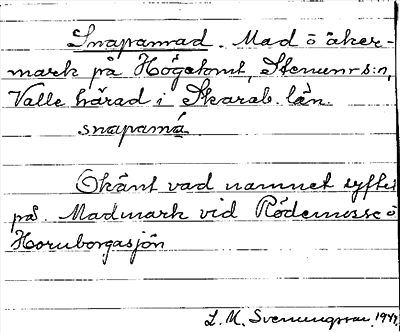 Snapamad. Mad o åker-
mark på Högatomt, Stenum s:n,
Valle härad i Skarab. län.
snapamá
Okänt vad namnet syftar
på. Madmark vid Rödemosse o
Hornborgasjön
L. M. Svenungsson 1947